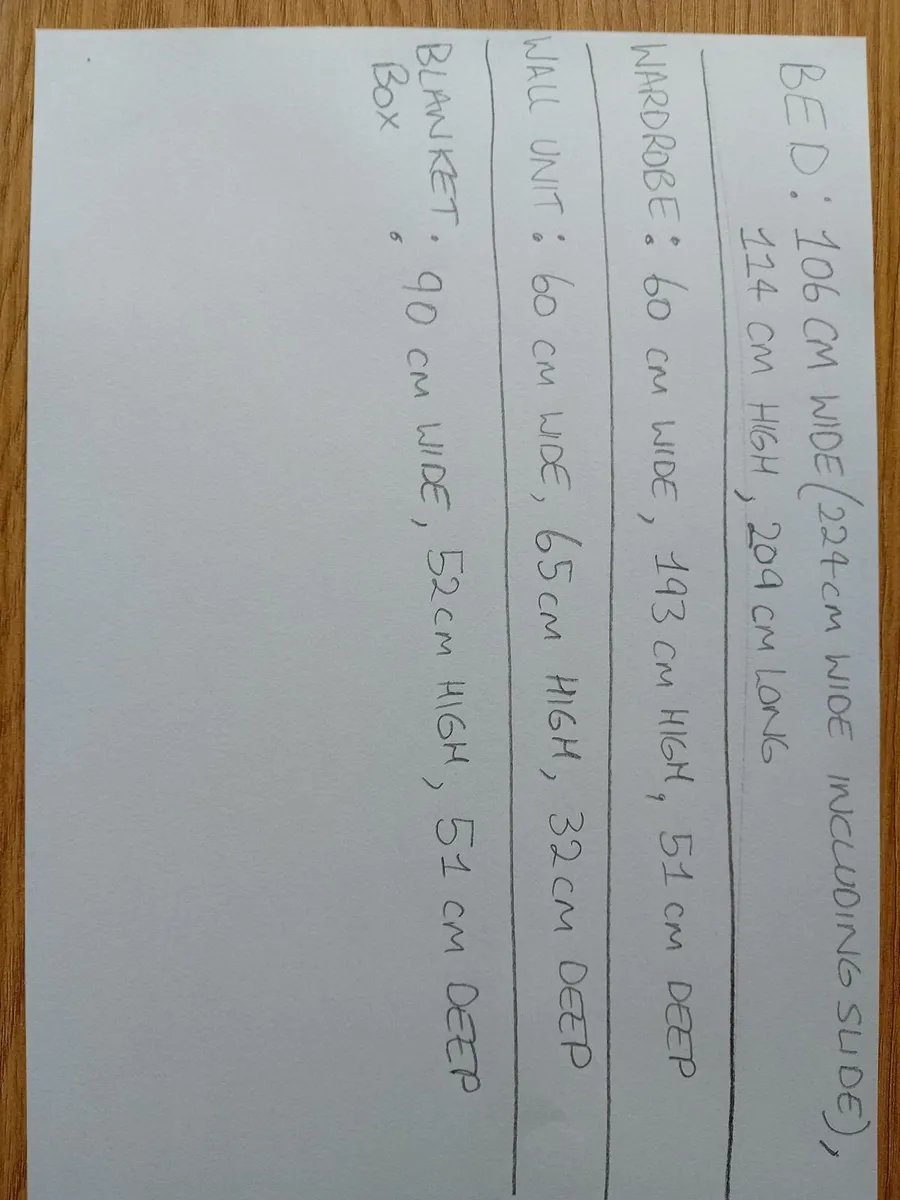 BED: 106 CM WIDE (224 CM WIDE INCLUDING SLIDE),
114 CM HIGH, 209 CM LONG
WARDROBE: 60 CM WIDE, 193 CM HIGH, 51 CM DEEP
WALL UNIT: 60 CM WIDE, 65 CM HIGH, 32 CM DEEP
BLANKET: 90 CM WIDE, 52 CM HIGH, 51 CM DEEP
BOX